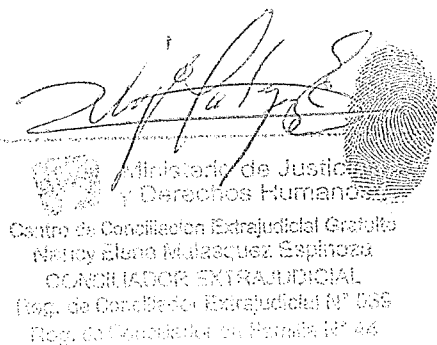 Ministerio de Justicia
y Derechos Humanos
Centro de Conciliación Extrajudicial Gratuito
Nancy Elena Malasquez Espinoza
CONCILIADOR EXTRAJUDICIAL
Reg. de Conciliador Extrajudicial N°
Reg. de Conciliador en Familia N°